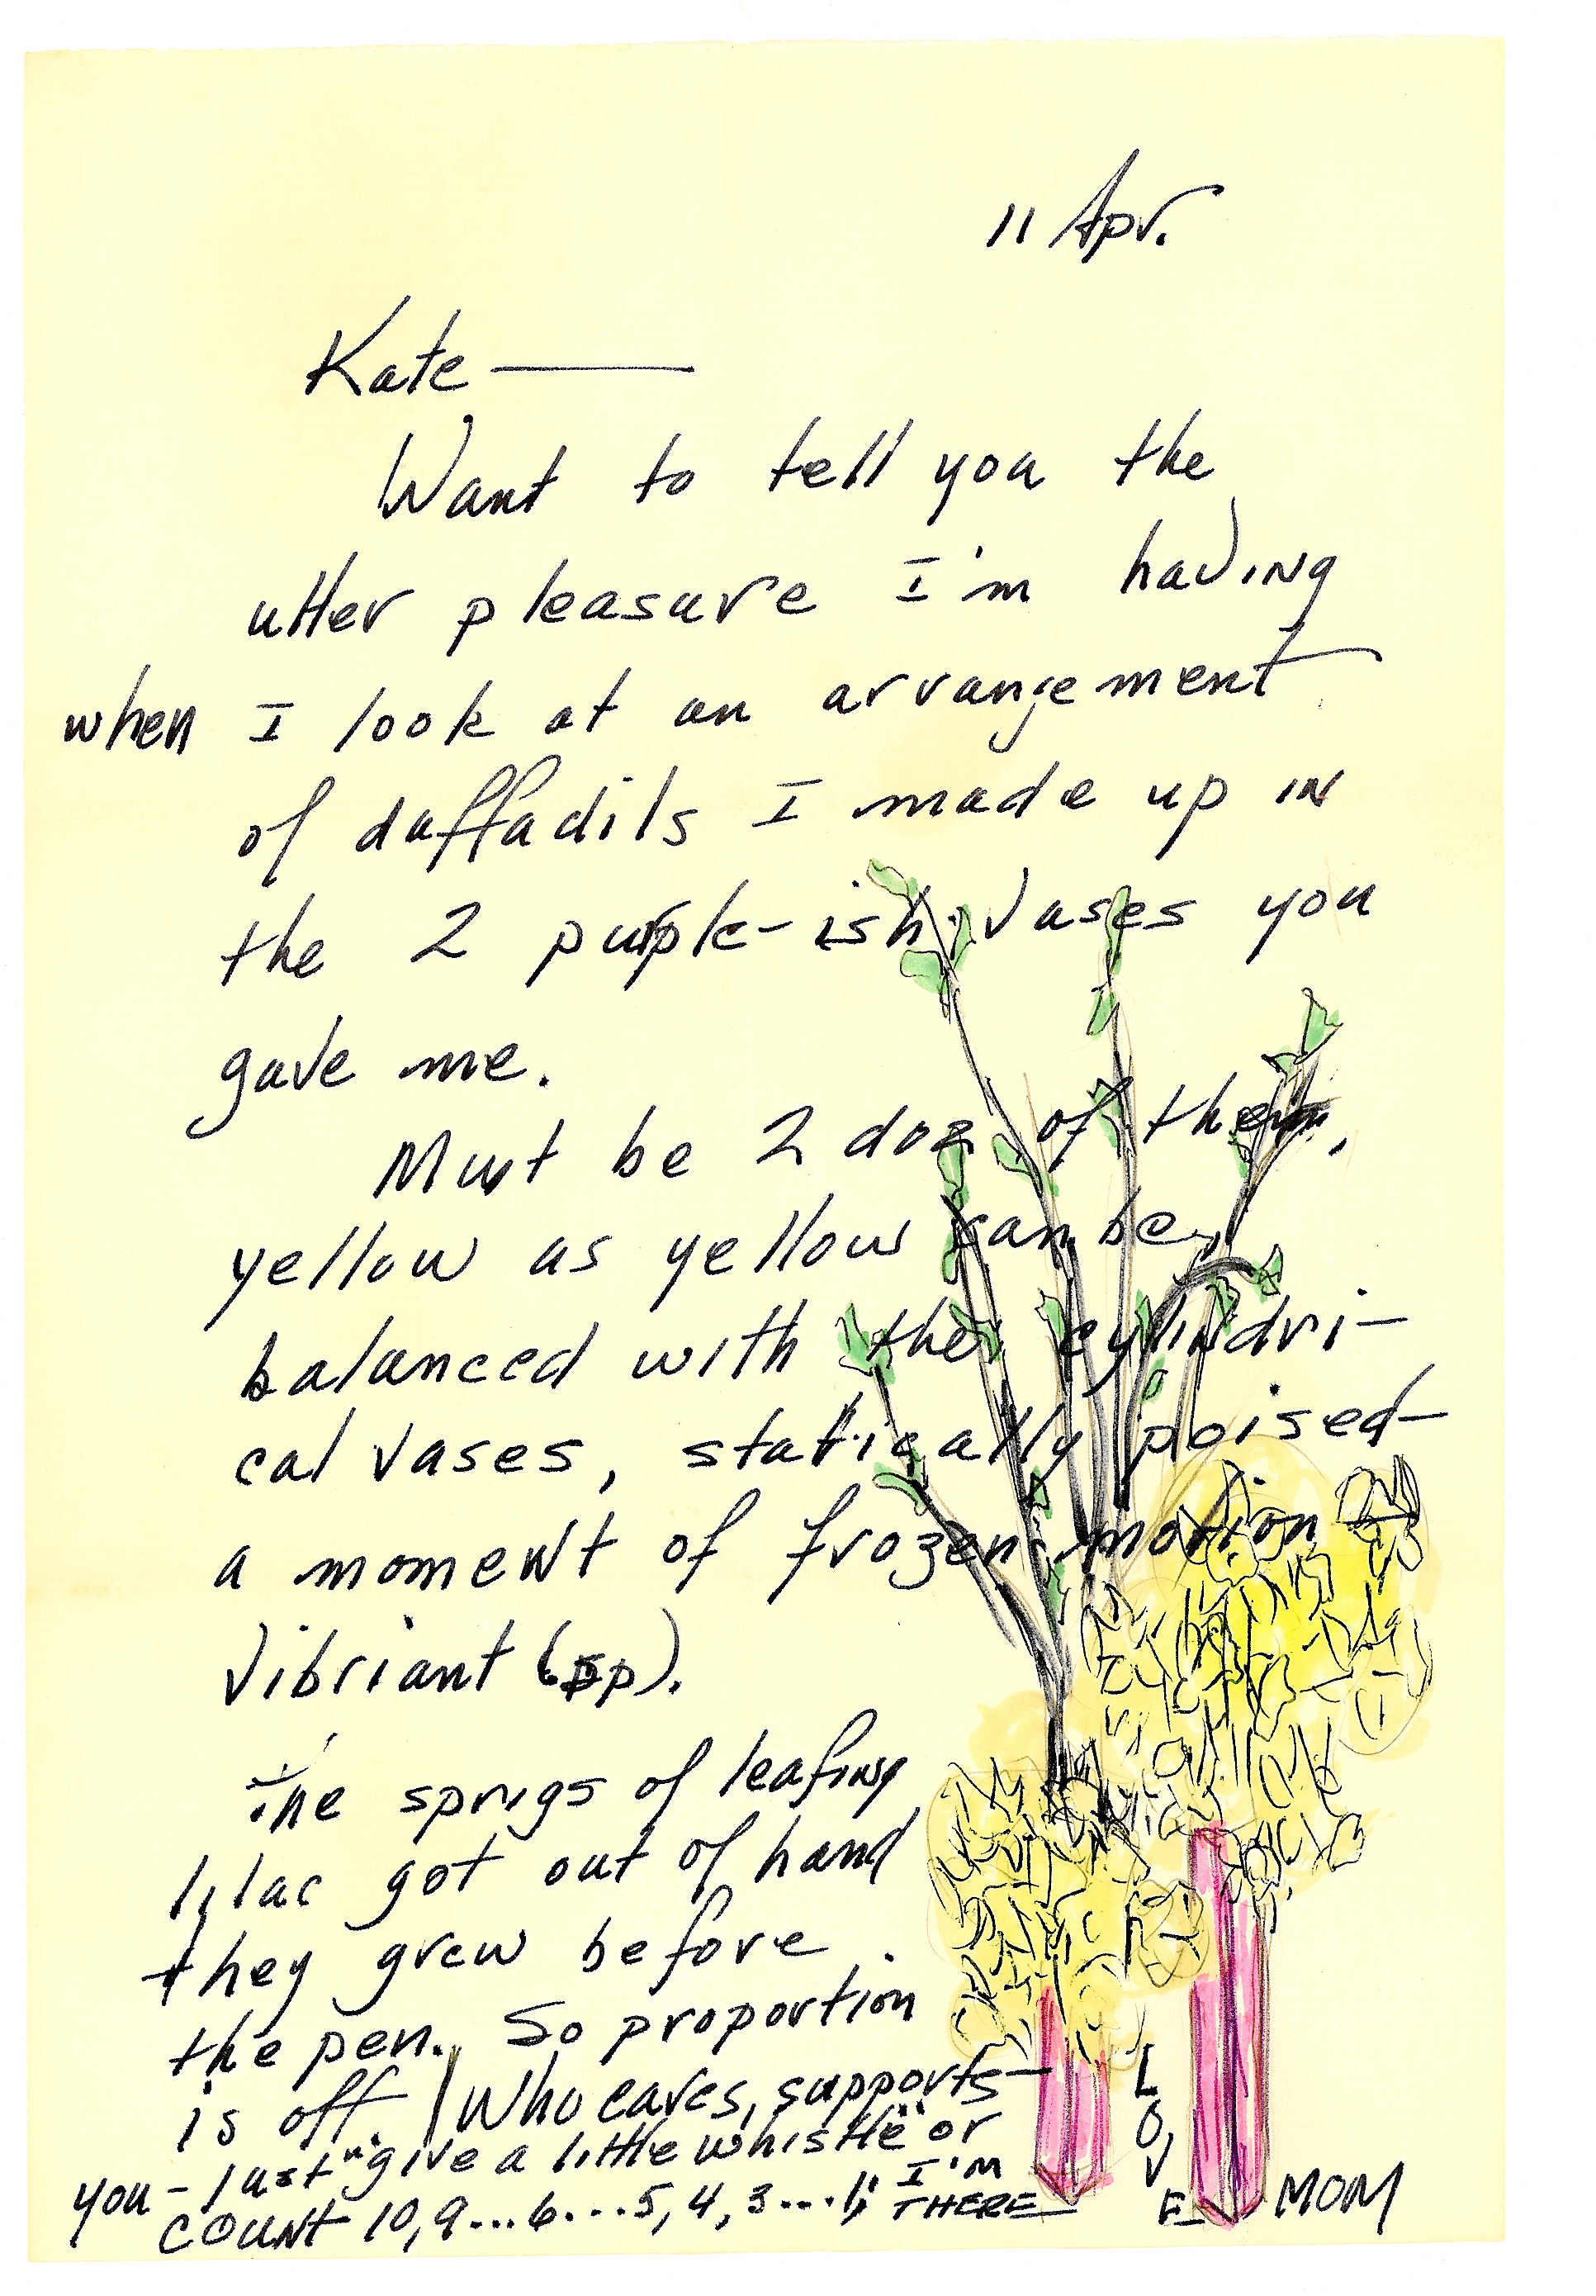 11 Apr.
Kate —
Want to tell you the
utter pleasure I'm having
when I look at an arrangement
of daffadils I made up in
the 2 purple-ish vases you
gave me.
Must be 2 doz of them,
yellow as yellow can be,
balanced with the cylindri-
cal vases, statically poised-
a moment of frozen motion
vibriant (sp).
The sprigs of leafing
lilac got out of hand
they grew before
the pen. So proportion
is off. Who cares, supports-
you - Just "give a little whistle" or
COUNT 10, 9... 6... 5, 4, 3... 1; I'M
THERE
LOVE,
MOM